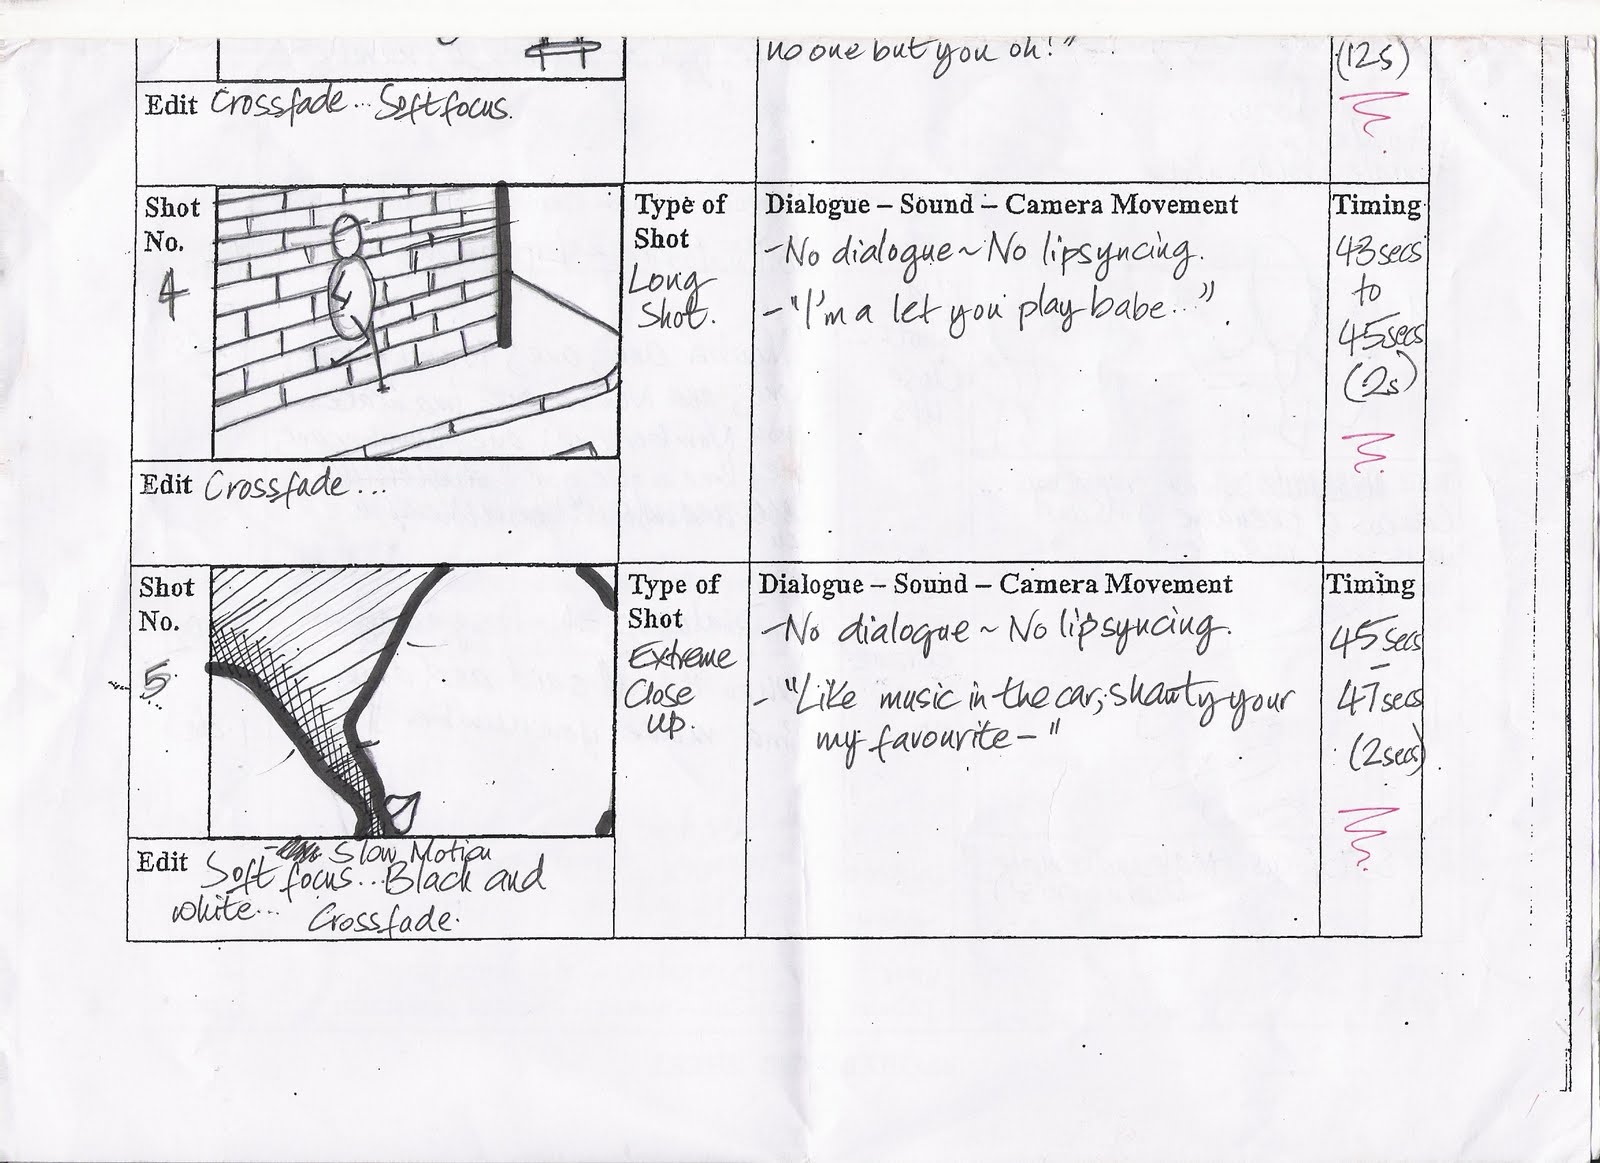 no one but you oh!"
(12s)
Edit Crossfade... Soft focus.
Shot
No.
4
Type of
Shot
Long
Shot.
Dialogue – Sound – Camera Movement
-No dialogue ~ No lipsyncing.
-"I'm a let you play babe..."
Timing
43secs
to
45secs
(2s)
Edit Crossfade...
Shot
No.
5
Type of
Shot
Extreme
Close
up.
Dialogue – Sound – Camera Movement
-No dialogue ~ No lipsyncing.
-"Like music in the car; shawty your
my favourite-"
Timing
45secs
-
47secs
(2secs)
Edit
Slow Motion
Soft focus... Black and
white...
Crossfade.